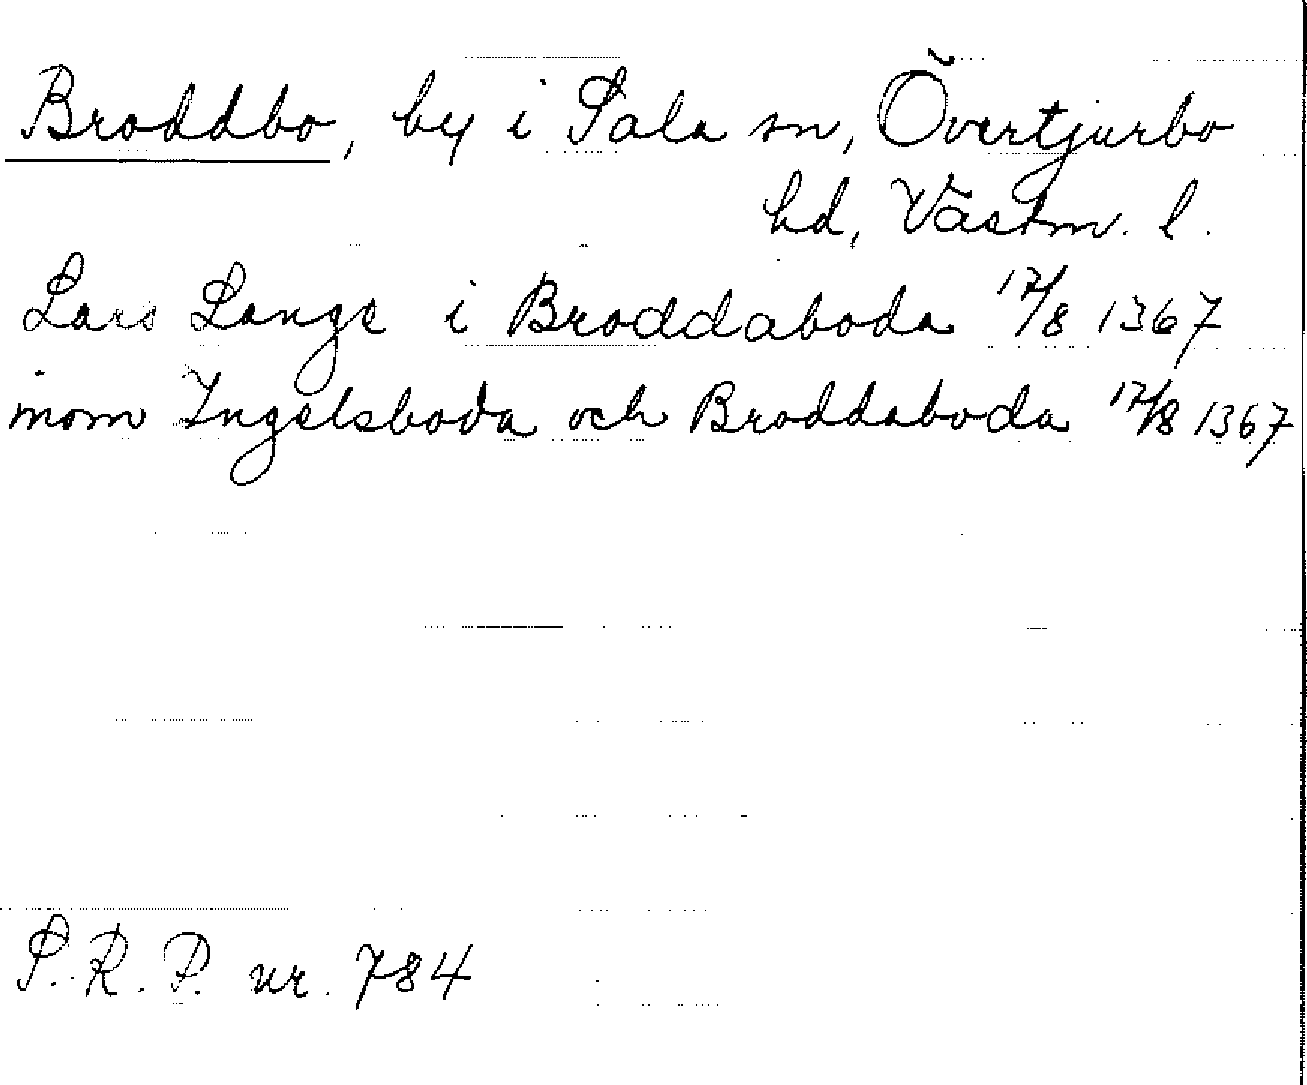 Broddbo, by i Sala sn, Övertjurbo
hd, Västm. l.
Lars Lange i Broddaboda 17/8 1367
inom Ingelsboda och Broddaboda 17/8 1367
S.R.P. nr. 784